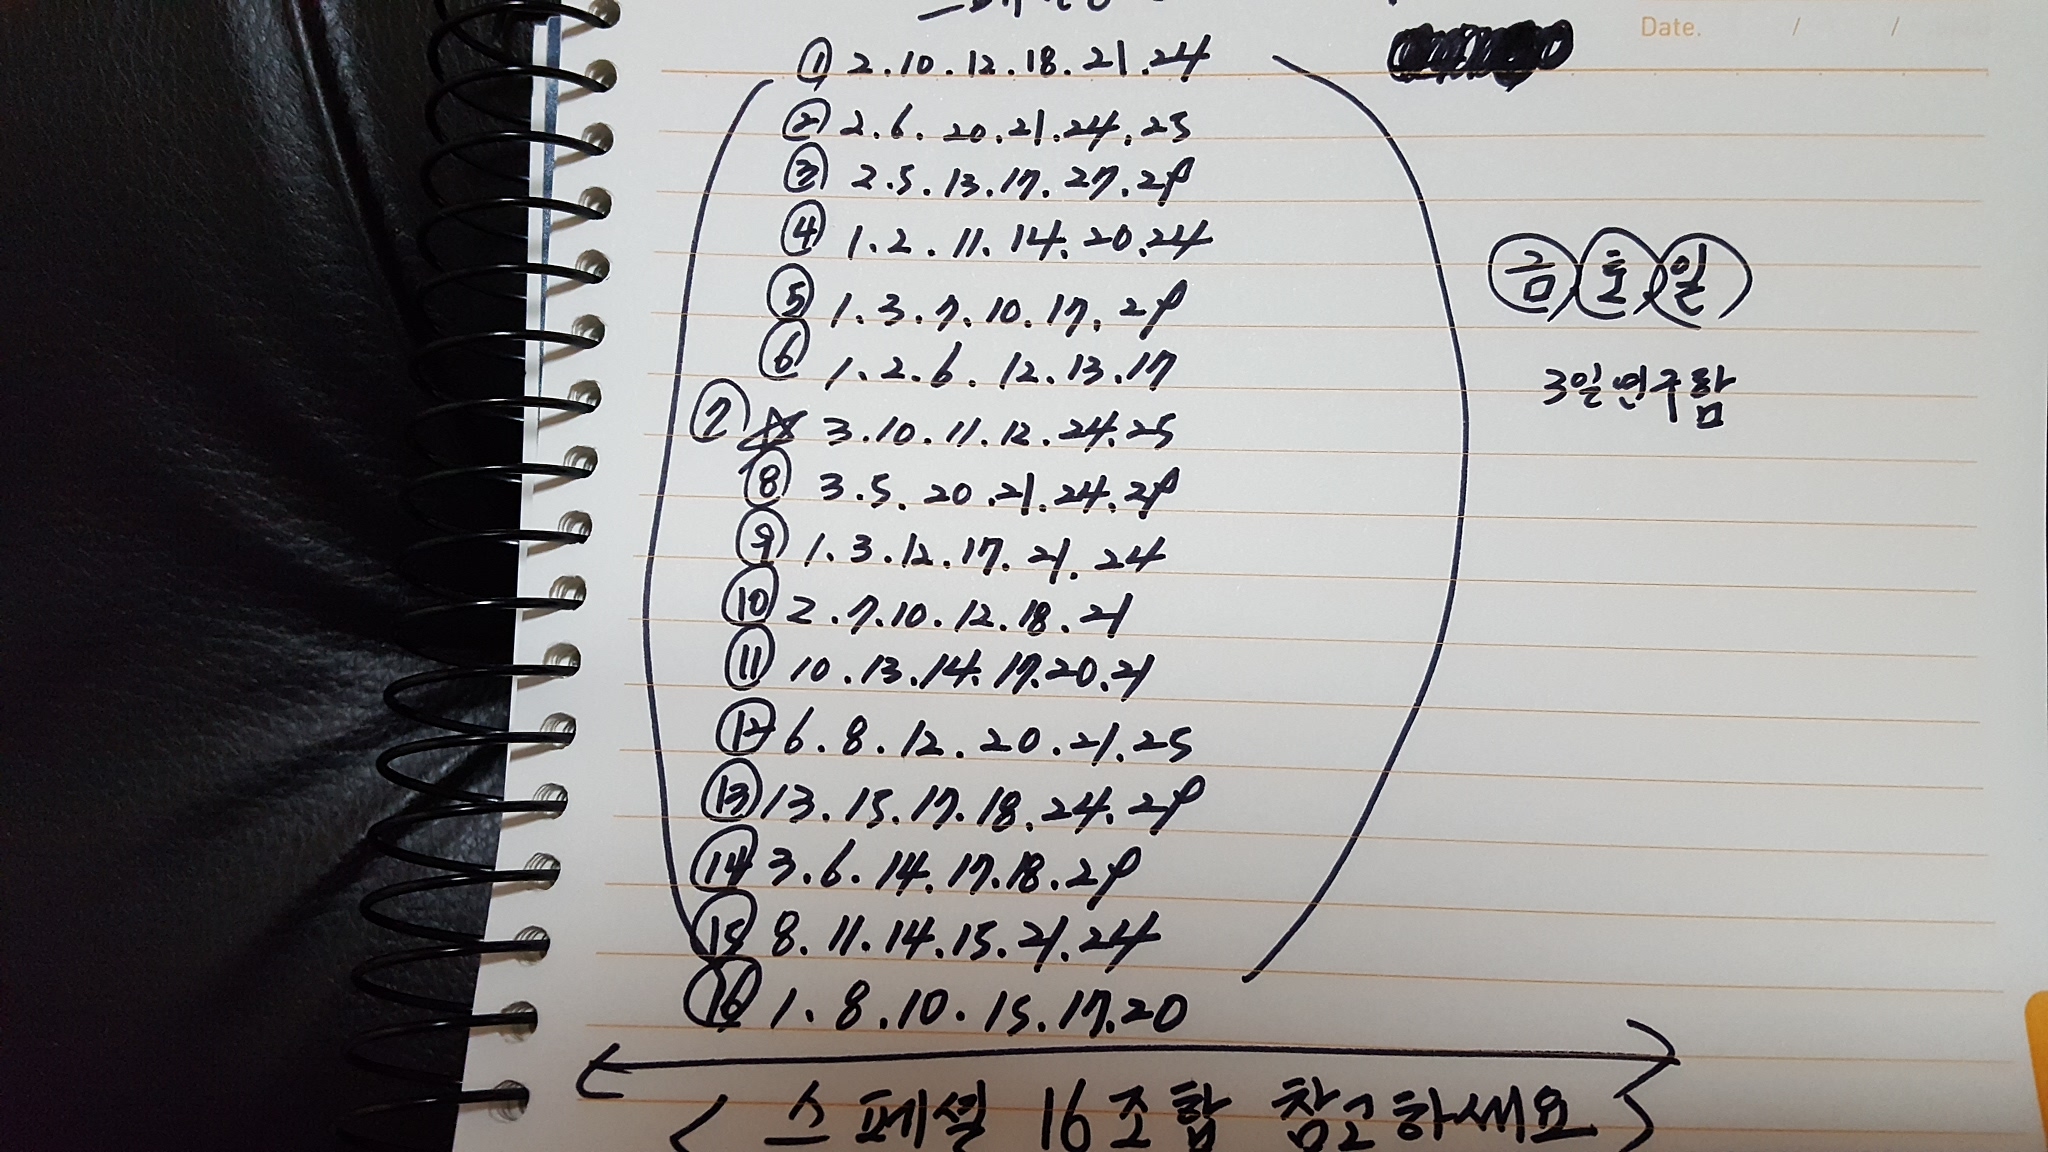 Date. / /
① 2.10.12.18.21.24
② 2.6.20.21.24.25
③ 2.5.13.17.27.29
④ 1.2.11.14.20.24
⑤ 1.3.7.10.17.29
⑥ 1.2.6.12.13.17
⑦ ☆ 3.10.11.12.24.25
⑧ 3.5.20.21.24.29
⑨ 1.3.12.17.21.24
⑩ 2.7.10.12.18.21
⑪ 10.13.14.17.20.21
⑫ 6.8.12.20.21.25
⑬ 13.15.17.18.24.29
⑭ 3.6.14.17.18.29
⑮ 8.11.14.15.21.24
⑯ 1.8.10.15.17.20
금,토,일
3일연구함
<스페셜 16조합 참고하세요>